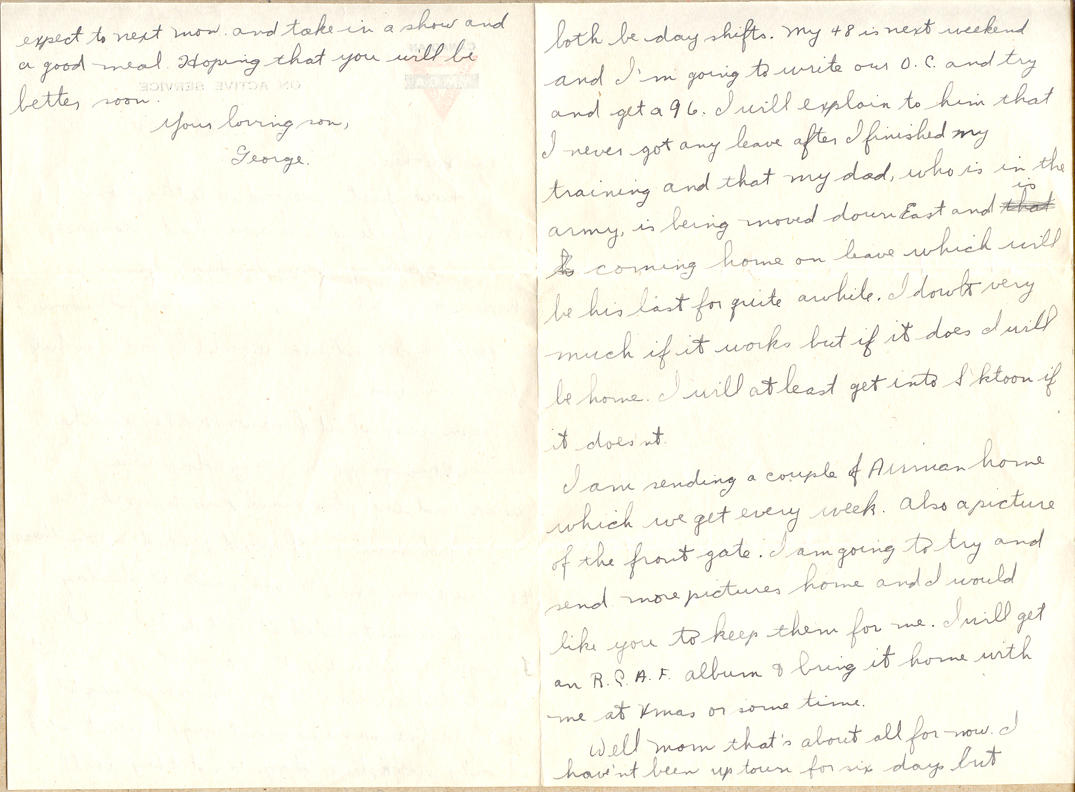 both be day shifts. My 48 is next weekend
and I'm going to write our O.C. and try
and get a 96. I will explain to him that
I never got any leave after I finished my
training and that my dad, who is in the
army, is being moved down East and is
coming home on leave which will
be his last for quite awhile. I doubt very
much if it works but if it does I will
be home. I will at least get into S'ktoon if
it does'nt.
I am sending a couple of Airman home
which we get every week. Also a picture
of the front gate. I am going to try and
send more pictures home and I would
like you to keep them for me. I will get
an R.C.A.F. album & bring it home with
me at Xmas or some time.
Well mom that's about all for now. I
hav'nt been up town for six days but
expect to next mon. and take in a show and
a good meal. Hoping that you will be
better soon.
Your loving son,
George.